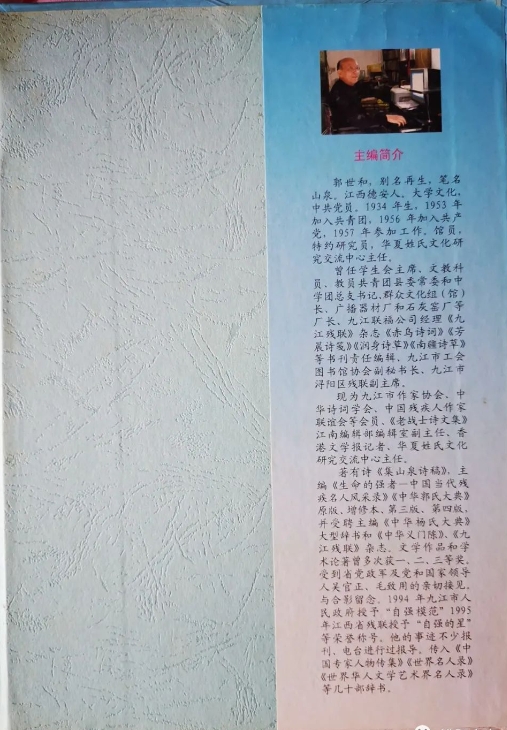 主编简介
郭世和，别名再生，笔名
山泉。江西德安人。大学文化，
中共党员。1934 年生，1953 年
加入共青团，1956 年加入共产
党，1957 年参加工作。馆员，
特约研究员，华夏姓氏文化研
究交流中心主任。
曾任学生会主席、文教科
员、教员共青团县委常委和中
学团总支书记，群众文化组（馆）
长、广播器材厂和石灰窑厂等
厂长、九江联福公司经理《九
江残联》杂志《赤乌诗词》《芳
晨诗笺》《润身诗草》《南疆诗草》
等书刊责任编辑、九江市工会
图书馆协会副秘书长、九江市
浔阳区残联副主席。
现为九江市作家协会、中
华诗词学会、中国残疾人作家
联谊会等会员、《老战士诗文集》
江南编辑部编辑室副主任、香
港文学报记者、华夏姓氏文化
研究交流中心主任。
著有诗《集山泉诗稿》，主
编《生命的强者—中国当代残
疾名人风采录》《中华郭氏大典》
原版、增修本、第三版、第四版，
并受聘主编《中华杨氏大典》
大型辞书和《中华义门陈》、《九
江残联》杂志。文学作品和学
术论著曾多次获一、二、三等奖。
受到省党政军及党和国家领导
人吴官正、毛致用的亲切接见，
与合影留念。1994 年九江市人
民政府授予“自强模范”1995
年江西省残联授予“自强的星”
等荣誉称号。他的事迹不少报
刊，电台进行过报导。传入《中
国专家人物传集》《世界名人录》
《世界华人文学艺术界名人录》
等几十部辞书。